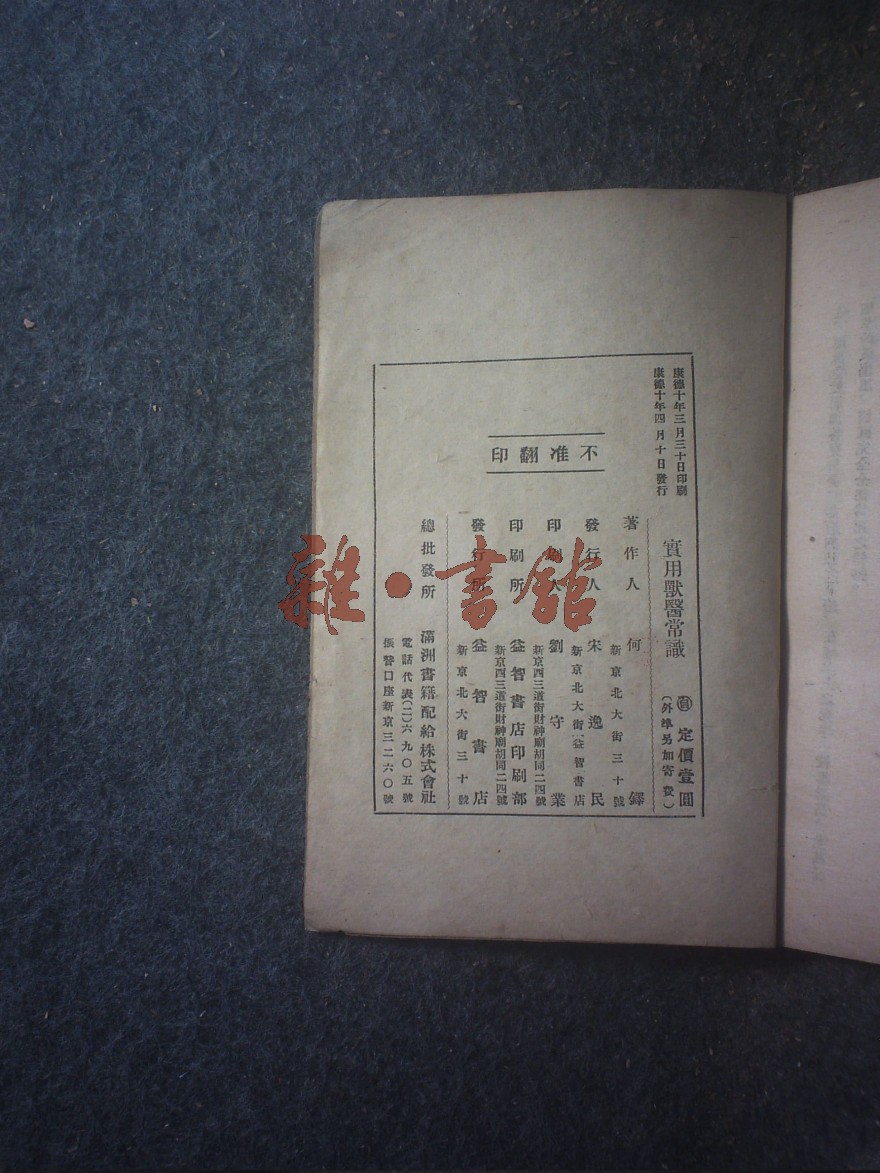 康德十年三月三十日印刷
康德十年四月十日發行
不准翻印
實用獸醫常識
定價壹圓
(外埠另加寄費)
著作人 何鐸
新京北大街三十號
發行人 宋逸民
新京北大街益智書店
印刷人 劉守業
新京西三道街財神廟胡同二四號
印刷所 益智書店印刷部
新京西三道街財神廟胡同二四號
發行所 益智書店
新京北大街三十號
總批發所 滿洲書籍配給株式會社
電話代表(二)六九〇五號
振替口座新京三二六〇號
雜·書館